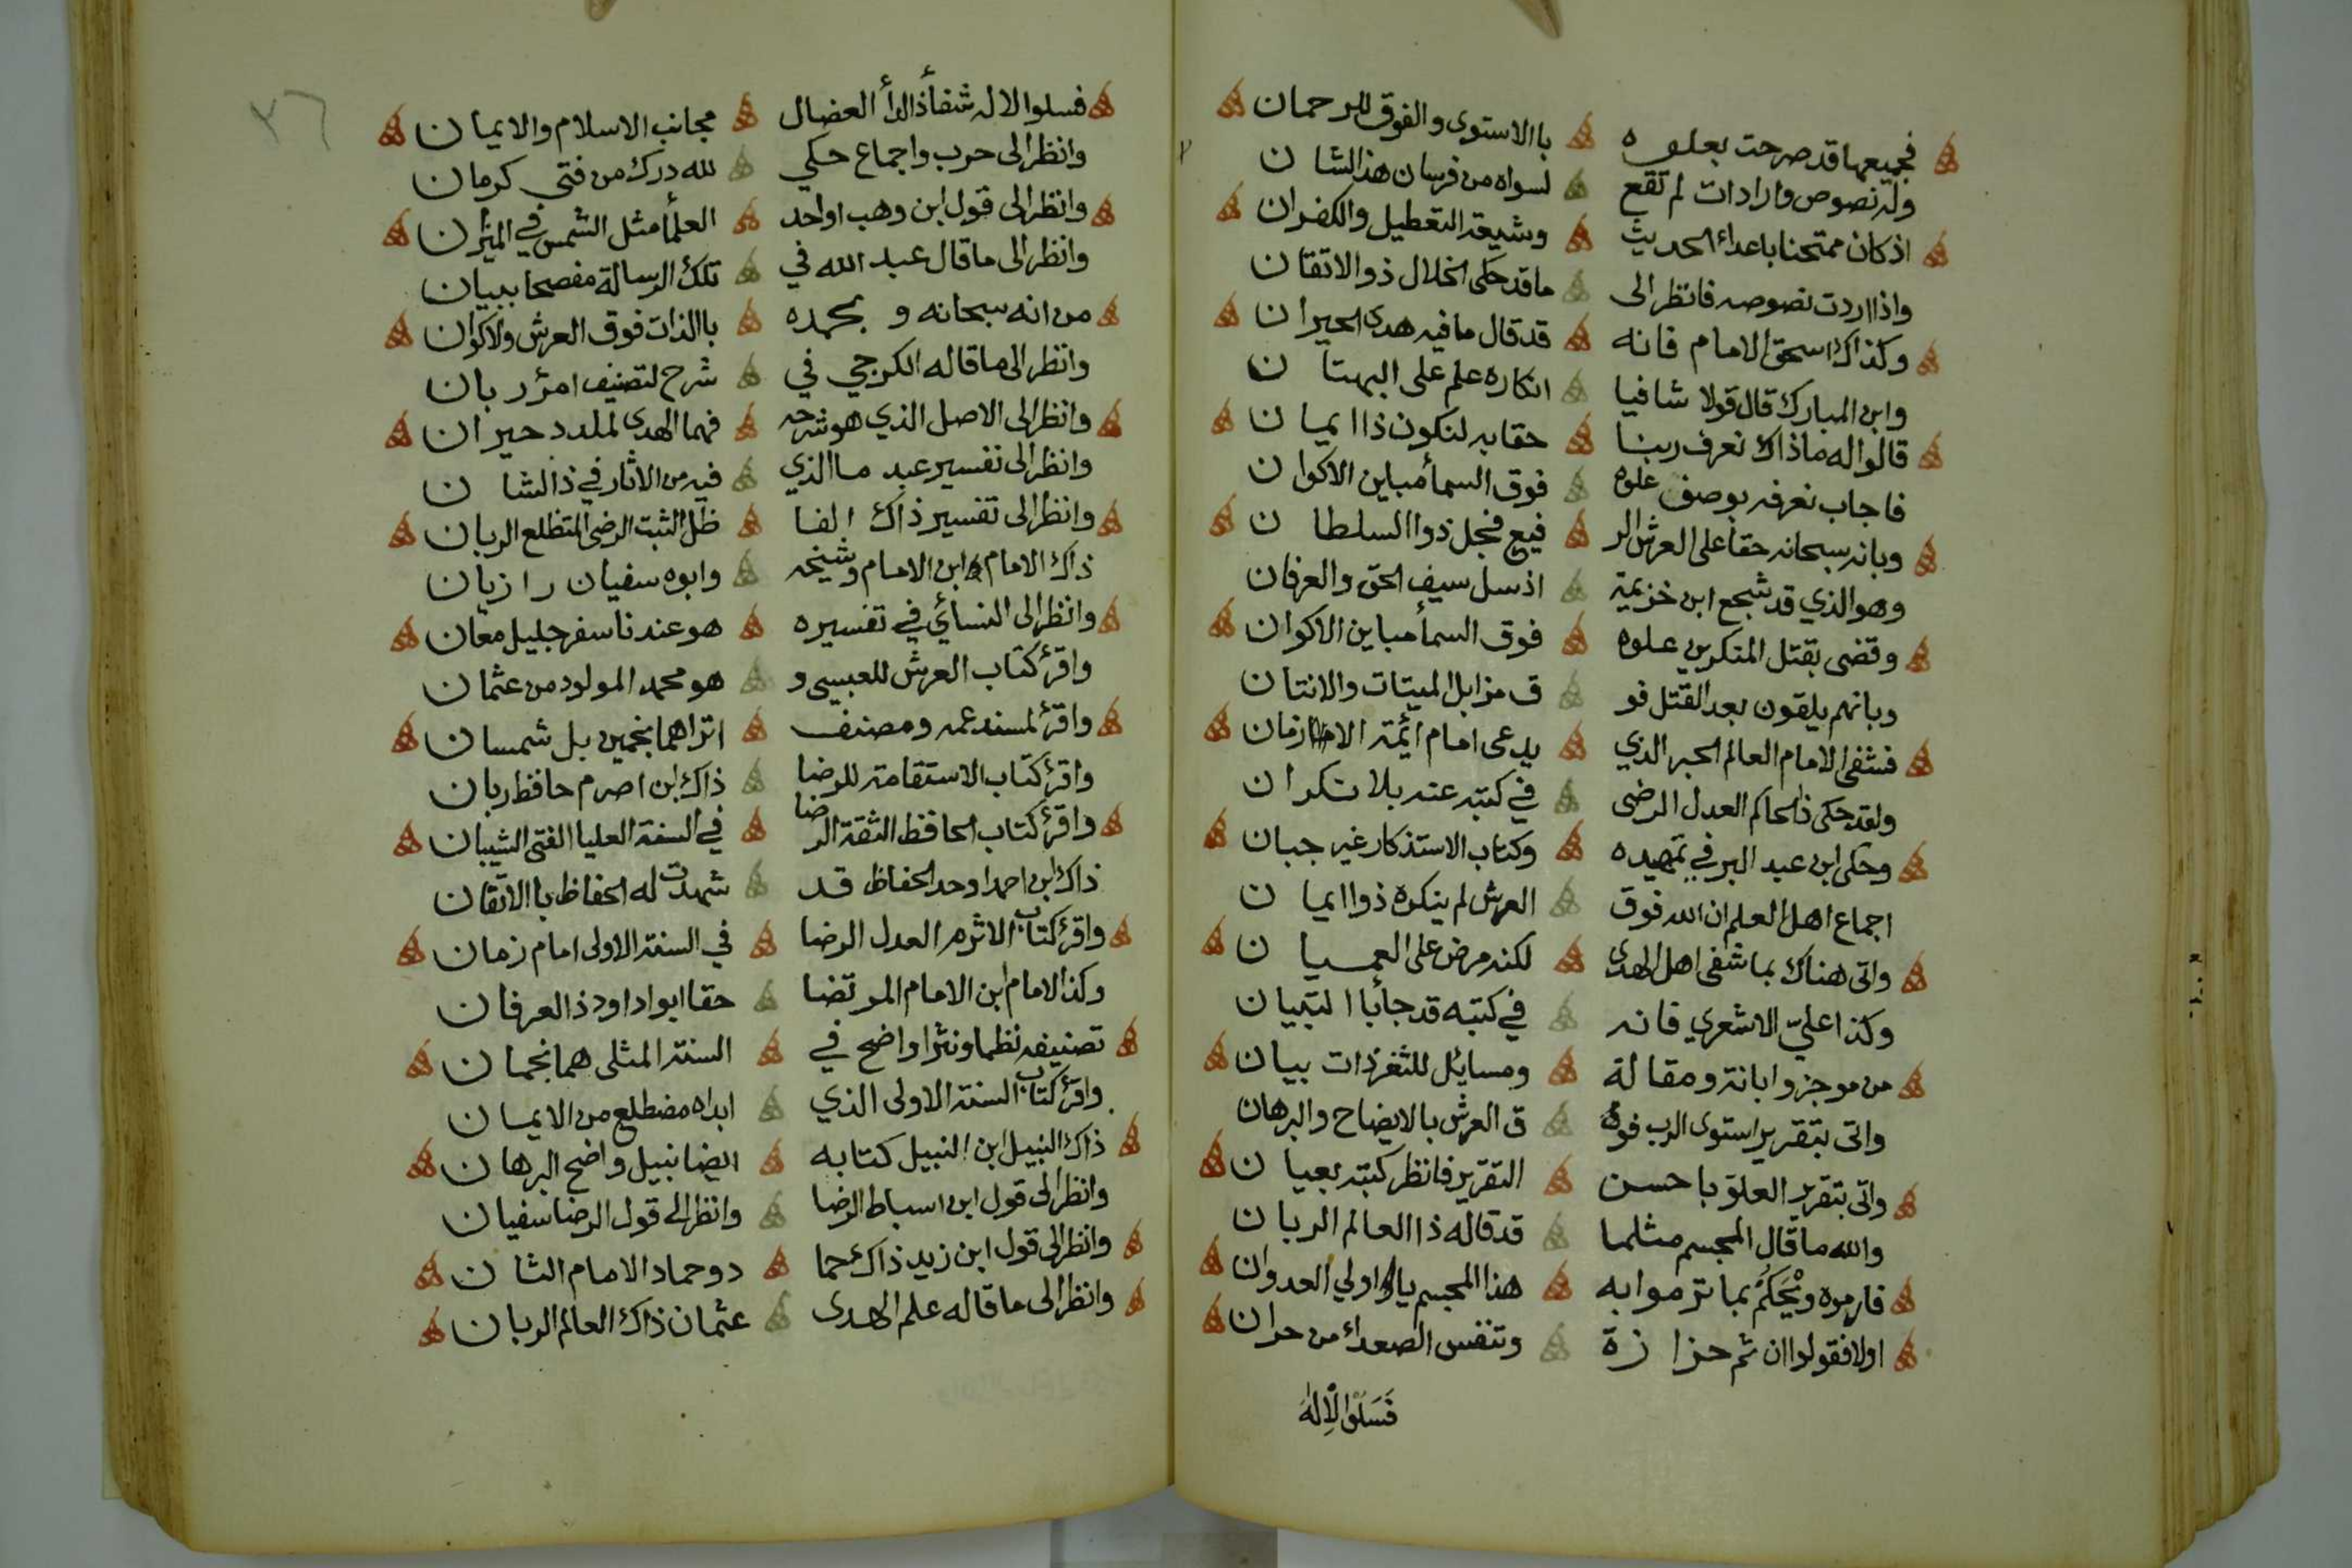 فجميعها قد صرحت بعلوه باالاستوى والفوق للرحمان
وله نصوص وارادات لم تقع لسواه من فرسان هذ الشان
اذ كان ممتحنا باعداء الحديث وشيعة التعطيل والكفران
واذا اردت نصوصه فانظر الى ما قد حكى الخلال ذو الاتقان
وكذاك اسحق الامام فانه قد قال ما فيه هدى الحيران
وابن المبارك قال قولا شافيا انكاره علم على البهتان
قالوا له ماذاك نعرف ربنا حقا به لنكون ذا ايمان
فاجاب نعرفه بوصف علوه فوق السمأ مباين الاكوان
وبانه سبحانه حقا على العرش الر فيع فجل ذوا السلطان
وهو الذي قد شجع ابن خزيمة اذ سل سيف الحق والعرفان
وقضى بقتل المنكرين علوه فوق السمأ مباين الاكوان
وبانهم يلقون بعد القتل فو ق مزابل الميتات والانتان
فشفى الامام العالم الحبر الذي يدعى امام ائمة الازمان
ولقد حكى ذا الحاكم العدل الرضى في كتبه عنه بلا نكران
وحكى ابن عبد البر في تمهيده وكتاب الاستذكار غير جبان
اجماع اهل العلم ان الله فوق العرش لم ينكره ذوا ايمان
واتى هناك بما شفى اهل الهدى لكنه مرض على العميان
وكذا علي الاشعري فانه في كتبه قد جأ باالتبيان
من موجز وابانة ومقالة ومسايل للثغر ذات بيان
واتى بتقرير استوى الرب فوق ق العرش بالايضاح والبرهان
واتى بتقرير العلو باحسن التقرير فانظر كتبه بعيان
والله ما قال المجسم مثلما قد قاله ذا العالم الربان
فارموه ويحكم بما ترموا به هذا المجسم يا اولي العدوان
اولا فقولوا ان ثم حزازة وتنفس الصعداء من حران
فَسَلُوا الْاِلٰهَ
٣٦
فسلوا الاله شفأ ذا الدأ العضال مجانب الاسلام والايمان
وانظر الى حرب واجماع حكي لله درك من فتي كرمان
وانظر الى قول ابن وهب اواحد العلمأ مثل الشمس في الميزان
وانظر الى ما قال عبد الله في تلك الرسالة مفصحا ببيان
من انه سبحانه وبحمده باالذات فوق العرش والاكوان
وانظر الى ما قاله الكرجي في شرح لتصنيف امرؤ ربان
وانظر الى الاصل الذي هو شرحه فهما الهدى لملدد حيران
وانظر الى تفسير عبد ما الذي فيه من الاثار في ذا الشان
وانظر الى تفسير ذاك الفا ظل الثبت الرضى المتظلع الربان
ذاك الامام ابن الامام وشيخه وابوه سفيان رازيان
وانظر الى النسأي في تفسيره هو عندنا سفر جليل معان
واقرئ كتاب العرش للعبسي و هو محمد المولود من عثمان
واقرئ لمسند عمه ومصنف اتراهما نجمين بل شمسان
واقرئ كتاب الاستقامة للرضا ذاك ابن اصرم حافظ ربان
واقرئ كتاب الحافظ الثقة الرضا في السنة العليا الفتى الشيبان
ذاك ابن احمد اوحد الحفاظ قد شهدت له الحفاظ باالاتقان
واقرئ كتاب الاثرم العدل الرضا في السنة الاولى امام زمان
وكذا الامام ابن الامام المرتضا حقا ابوا داود ذ العرفان
تصنيفه نظما ونثرا واضح في السنة المثلى هما نجمان
واقرئ كتاب السنة الاولى الذي ابداه مضطلع من الايمان
ذاك النبيل ابن النبيل كتابه ايضا نبيل واضح البرهان
وانظر الى قول ابن اسباط الرضا وانظر الى قول الرضا سفيان
وانظر الى قول ابن زيد ذاك حما دو حماد الامام الثان
وانظر الى ما قاله علم الهدى عثمان ذاك العالم الربان